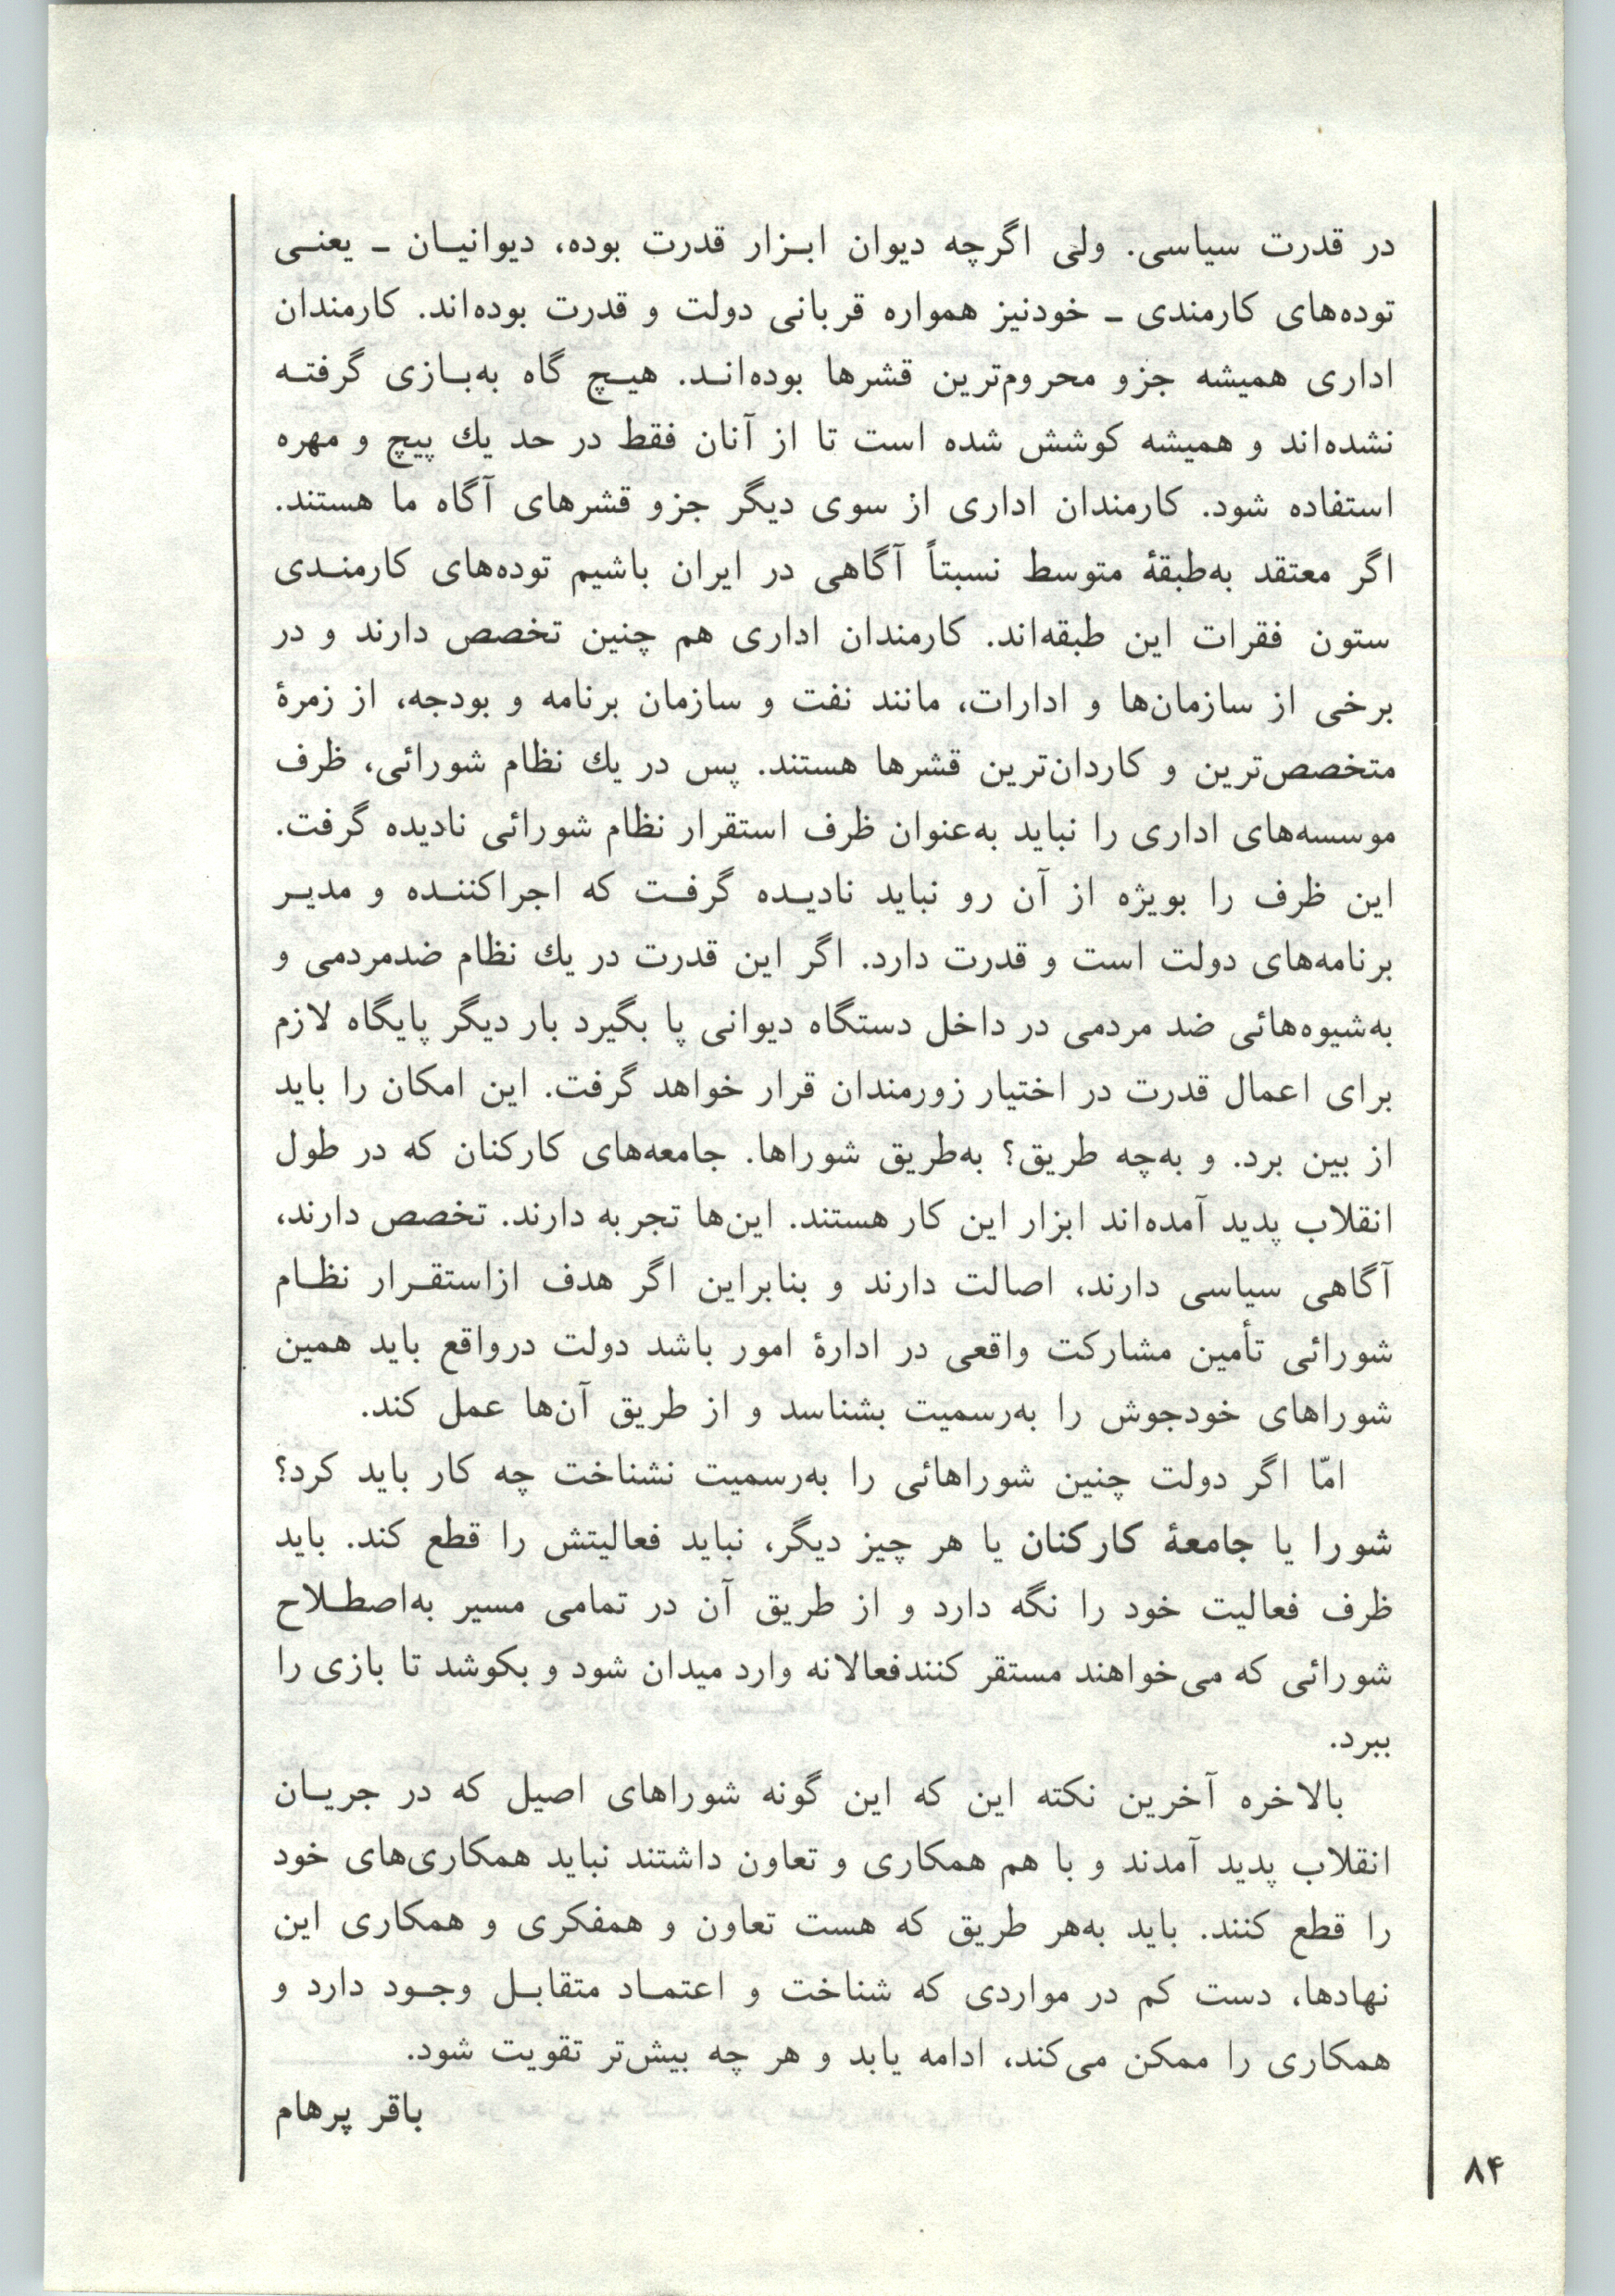 در قدرت سیاسی. ولی اگرچه دیوان ابـزار قدرت بوده، دیوانیـان ـ یعنـی
توده‌های کارمندی ـ خودنیز همواره قربانی دولت و قدرت بوده‌اند. کارمندان
اداری همیشه جزو محروم‌ترین قشرها بوده‌انـد. هیـچ گاه به‌بـازی گرفتـه
نشده‌اند و همیشه کوشش شده است تا از آنان فقط در حد یك پیچ و مهره
استفاده شود. کارمندان اداری از سوی دیگر جزو قشرهای آگاه ما هستند.
اگر معتقد به‌طبقۀ متوسط نسبتاً آگاهی در ایران باشیم توده‌های کارمنـدی
ستون فقرات این طبقه‌اند. کارمندان اداری هم چنین تخصص دارند و در
برخی از سازمان‌ها و ادارات، مانند نفت و سازمان برنامه و بودجه، از زمرۀ
متخصص‌ترین و کاردان‌ترین قشرها هستند. پس در یك نظام شورائی، ظرف
موسسه‌های اداری را نباید به‌عنوان ظرف استقرار نظام شورائی نادیده گرفت.
این ظرف را بویژه از آن رو نباید نادیـده گرفـت که اجراکننـده و مدیـر
برنامه‌های دولت است و قدرت دارد. اگر این قدرت در یك نظام ضدمردمی و
به‌شیوه‌هائی ضد مردمی در داخل دستگاه دیوانی پا بگیرد بار دیگر پایگاه لازم
برای اعمال قدرت در اختیار زورمندان قرار خواهد گرفت. این امکان را باید
از بین برد. و به‌چه طریق؟ به‌طریق شوراها. جامعه‌های کارکنان که در طول
انقلاب پدید آمده‌اند ابزار این کار هستند. این‌ها تجربه دارند. تخصص دارند،
آگاهی سیاسی دارند، اصالت دارند و بنابراین اگر هدف ازاستقـرار نظـام
شورائی تأمین مشارکت واقعی در ادارۀ امور باشد دولت درواقع باید همین
شوراهای خودجوش را به‌رسمیت بشناسد و از طریق آن‌ها عمل کند.
امّا اگر دولت چنین شوراهائی را به‌رسمیت نشناخت چه کار باید کرد؟
شورا یا جامعۀ کارکنان یا هر چیز دیگر، نباید فعالیتش را قطع کند. باید
ظرف فعالیت خود را نگه دارد و از طریق آن در تمامی مسیر به‌اصطـلاح
شورائی که می‌خواهند مستقر کنندفعالانه وارد میدان شود و بکوشد تا بازی را
ببرد.
بالاخره آخرین نکته این که این گونه شوراهای اصیل که در جریـان
انقلاب پدید آمدند و با هم همکاری و تعاون داشتند نباید همکاری‌های خود
را قطع کنند. باید به‌هر طریق که هست تعاون و همفکری و همکاری این
نهادها، دست کم در مواردی که شناخت و اعتمـاد متقابـل وجـود دارد و
همکاری را ممکن می‌کند، ادامه یابد و هر چه بیش‌تر تقویت شود.
باقر پرهام
۸۴